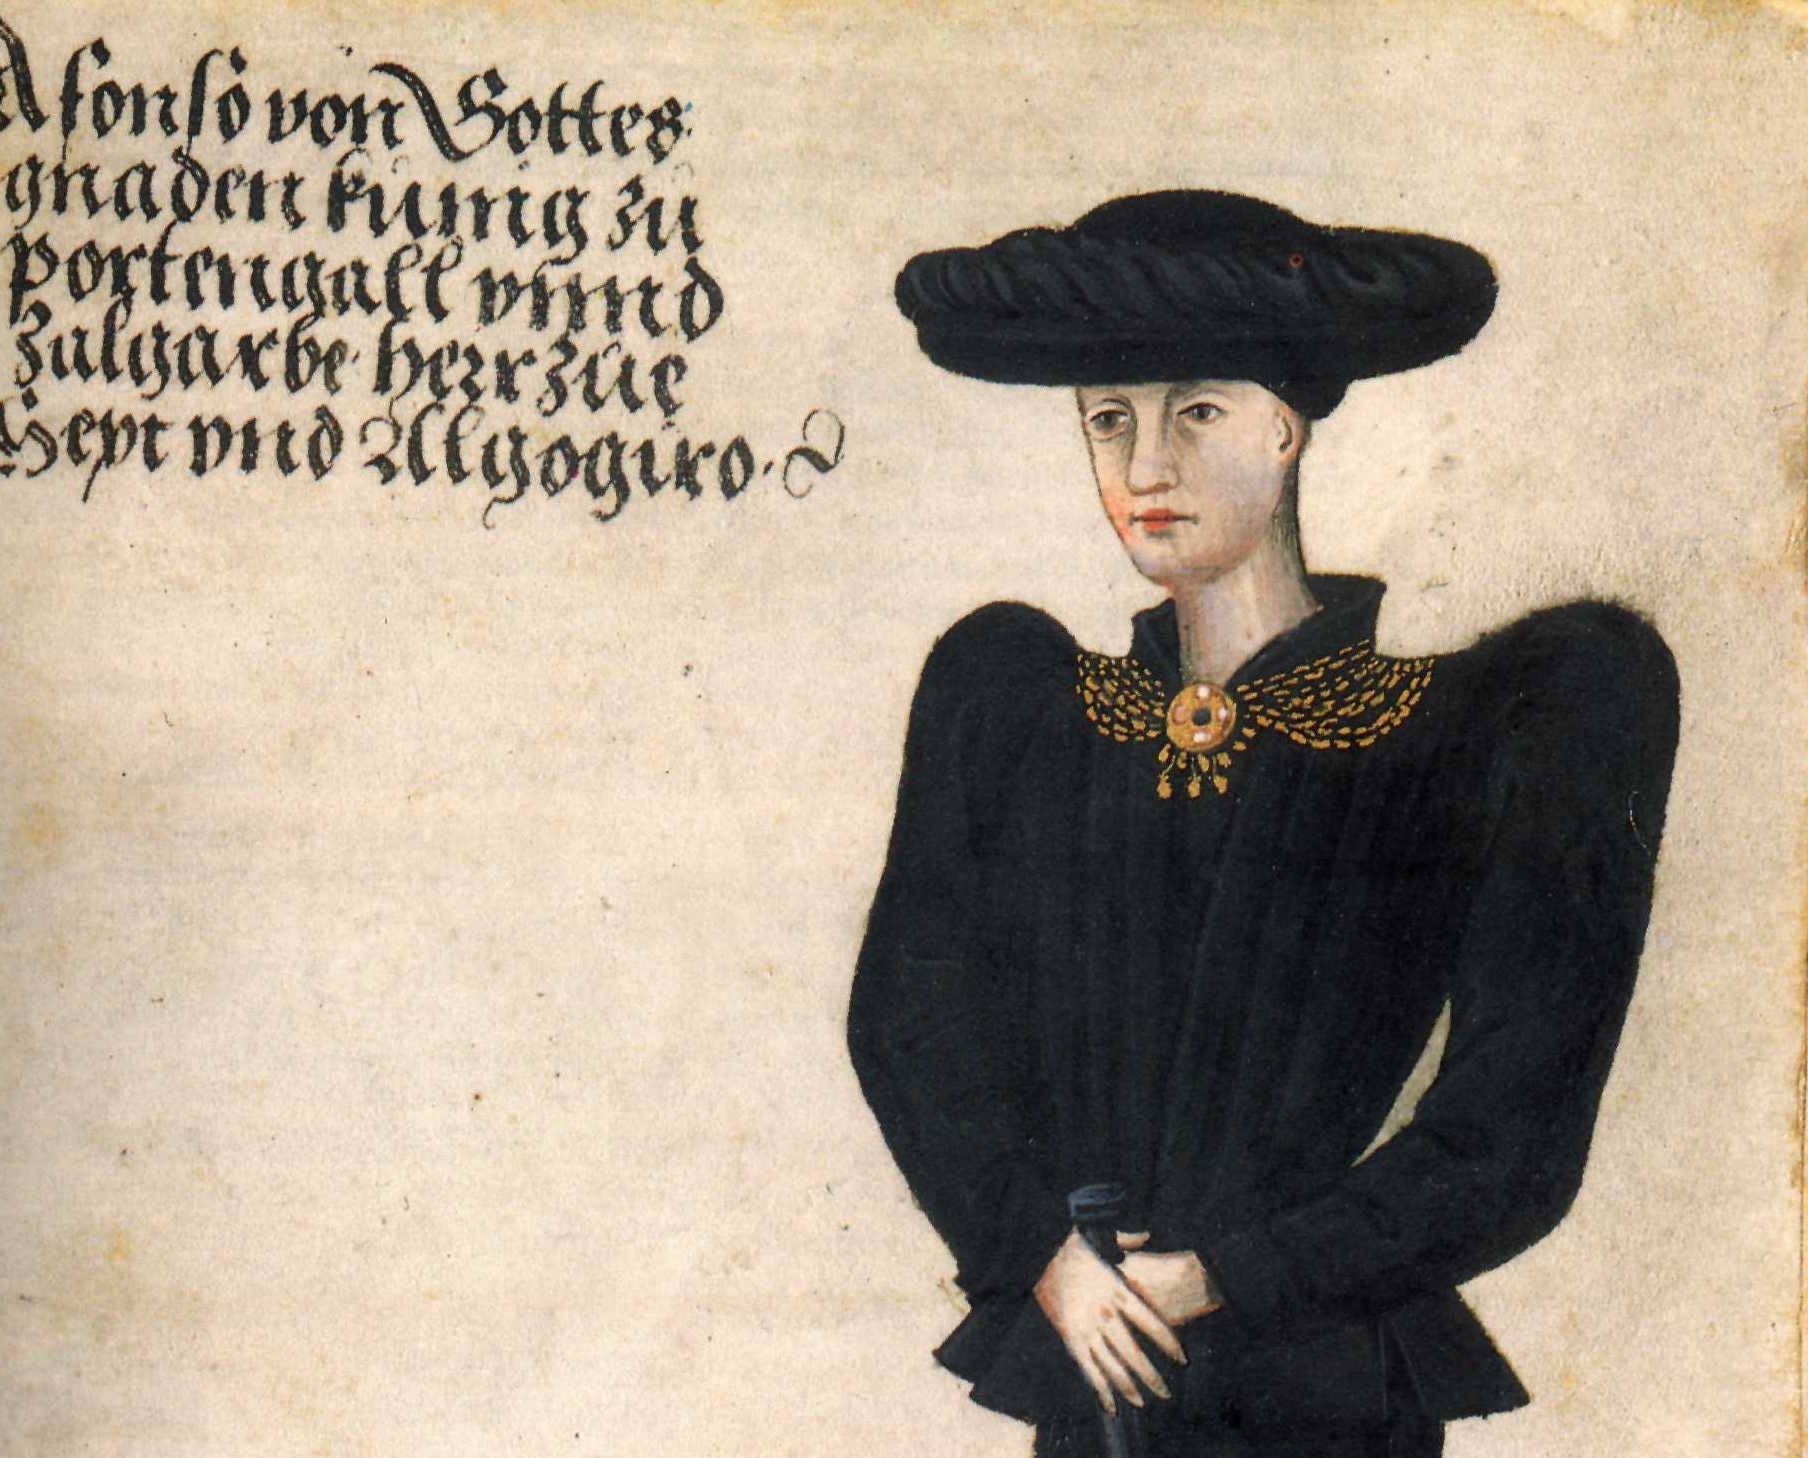 Afonso von Gottes
gnaden künig zu
portengall vnnd
zalgarbe herr zue
Sept vnd Algogiro.